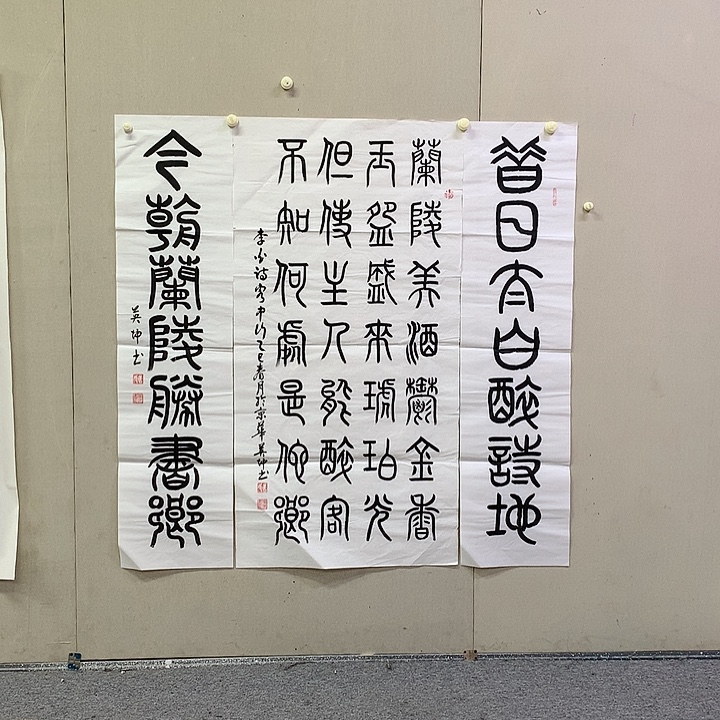 昔日太白醉詩地
蘭陵美酒鬱金香
玉盌盛來琥珀光
但使主人能醉客
不知何處是他鄉
李白詩客中行乙巳春月於京華吴坤書
今朝蘭陵勝書鄉
吴坤书